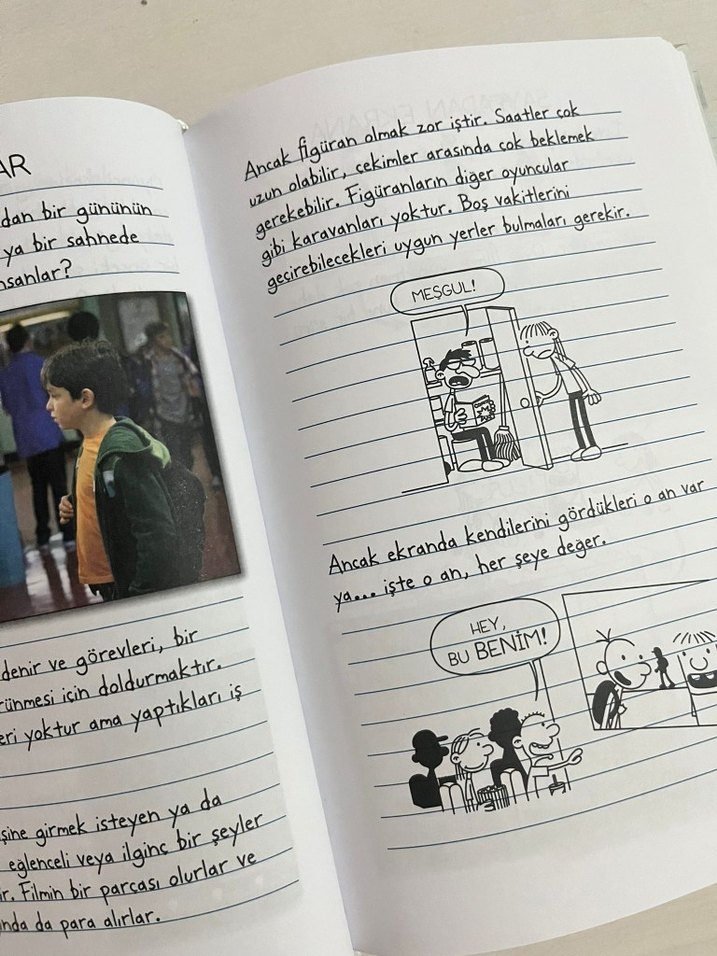 AR
dan bir gününün
ya bir sahnede
nsanlar?
denir ve görevleri, bir
rünmesi için doldurmaktır.
eri yoktur ama yaptıkları iş
şine girmek isteyen ya da
eğlenceli veya ilginç bir şeyler
ir. Filmin bir parçası olurlar ve
ında da para alırlar.
Ancak figüran olmak zor iştir. Saatler çok
uzun olabilir, çekimler arasında çok beklemek
gerekebilir. Figüranların diğer oyuncular
gibi karavanları yoktur. Boş vakitlerini
geçirebilecekleri uygun yerler bulmaları gerekir.
MEŞGUL!
Ancak ekranda kendilerini gördükleri o an var
ya... işte o an, her şeye değer.
HEY,
BU BENİM!